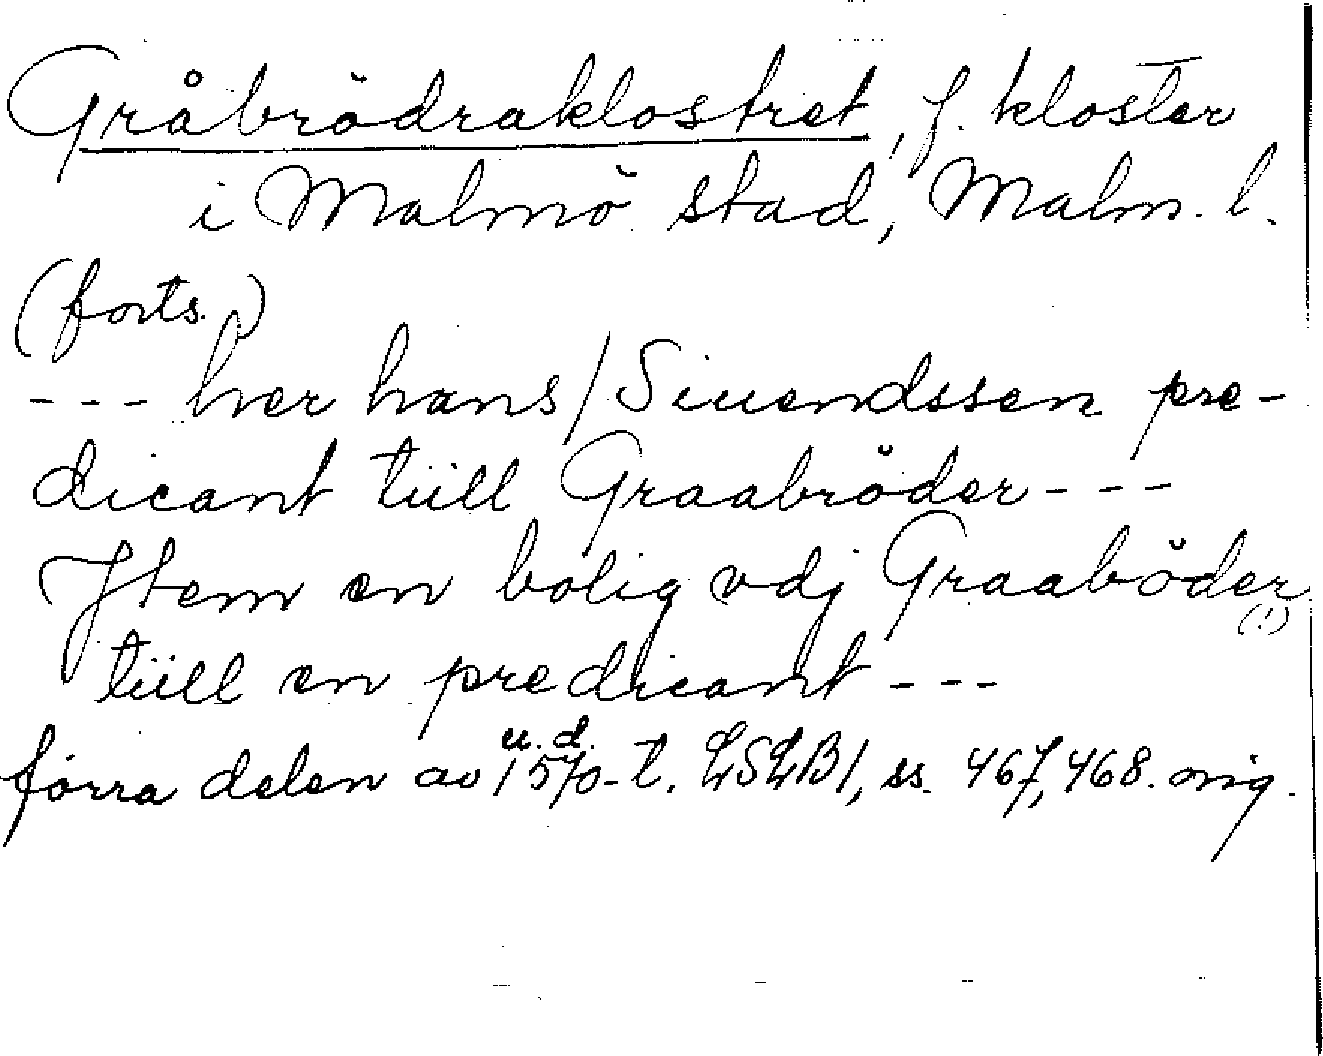 Gråbrödraklostret, f. kloster
i Malmö stad, Malm. l.
(forts.)
--- her hans / Siuendssen pre-
dicant tiill Graabröder ---
Jtem en bolig vdj Graaböder
(!)
tiill en predicant ---
u. d.
förra delen av 1570-t. LSLB1, ss. 467, 468. orig.